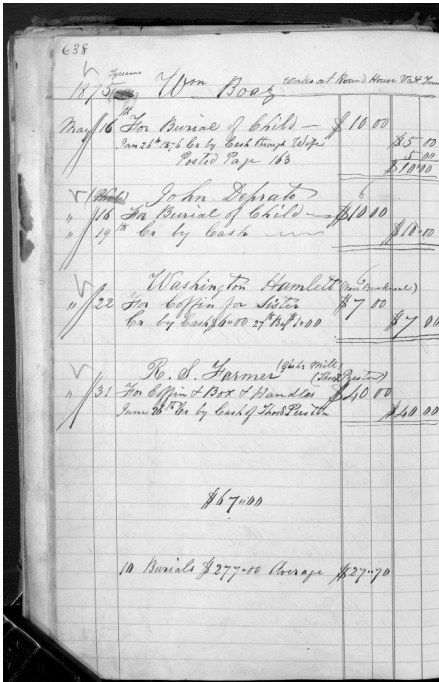 638
1875 Wm Boaz works at Round House Va &
May 16th For Burial of Child — $10 00
Jan 26th 1876 Cr by Cash through Wife $5 00
Posted Page 163 5 00
$10.00
John Deprato
" 16 For Burial of Child — $10 00
" 19th Cr by Cash $10.00
Washington Hamlett
" 22 For Coffin for Sister $7 00
Cr by Cash $6.00 27th Bal 1.00 $7 00
R. S. Farmer (Mill)
(Thos Preston)
" 31 For Coffin & Box & Handles $40 00
June 26th Cr by Cash of Thos Preston $40 00
$67.00
10 Burials $277.00 Average $27.70